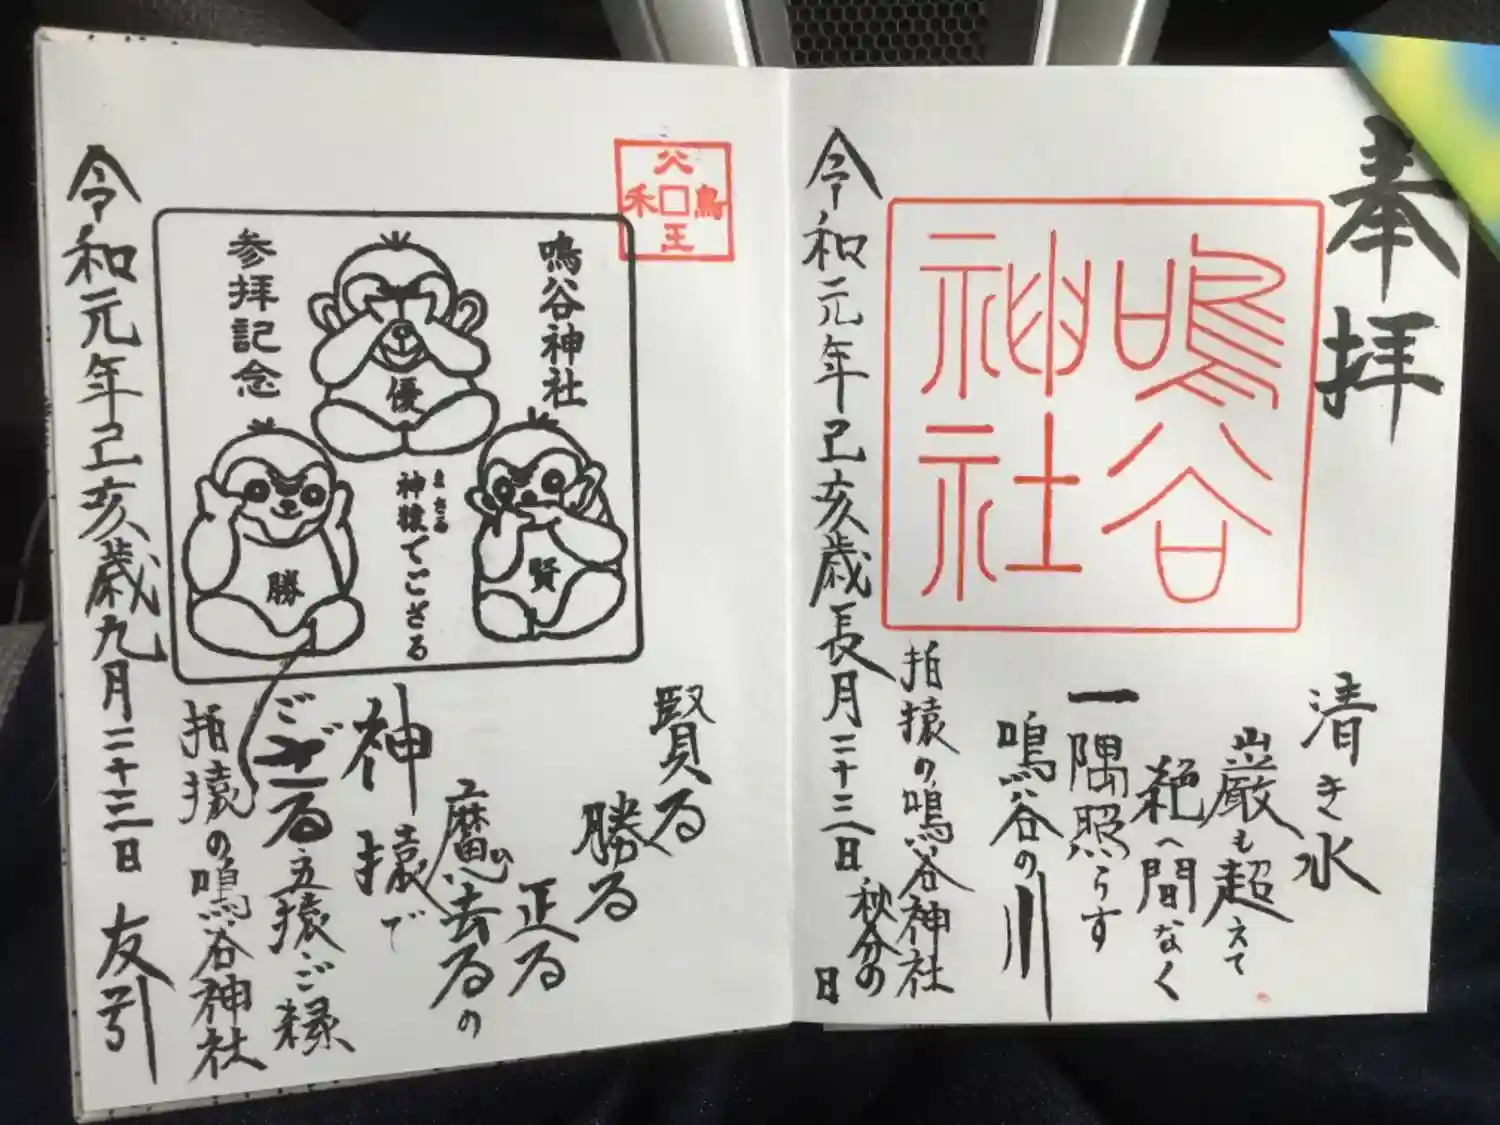 奉拝
鳴谷
神社
清き水
巌も超えて
絶へ間なく
一隅照らす
鳴谷の川
拍猿の鳴谷神社
令和元年己亥歳長月二十三日
秋分の日
鳴谷神社
参拝記念
優
勝
賢
神猿でござる
まさる
賢る
勝る
正る
魔去るの
神猿で
ござる五猿ご縁
拍猿の鳴谷神社
令和元年己亥歳九月二十三日 友引